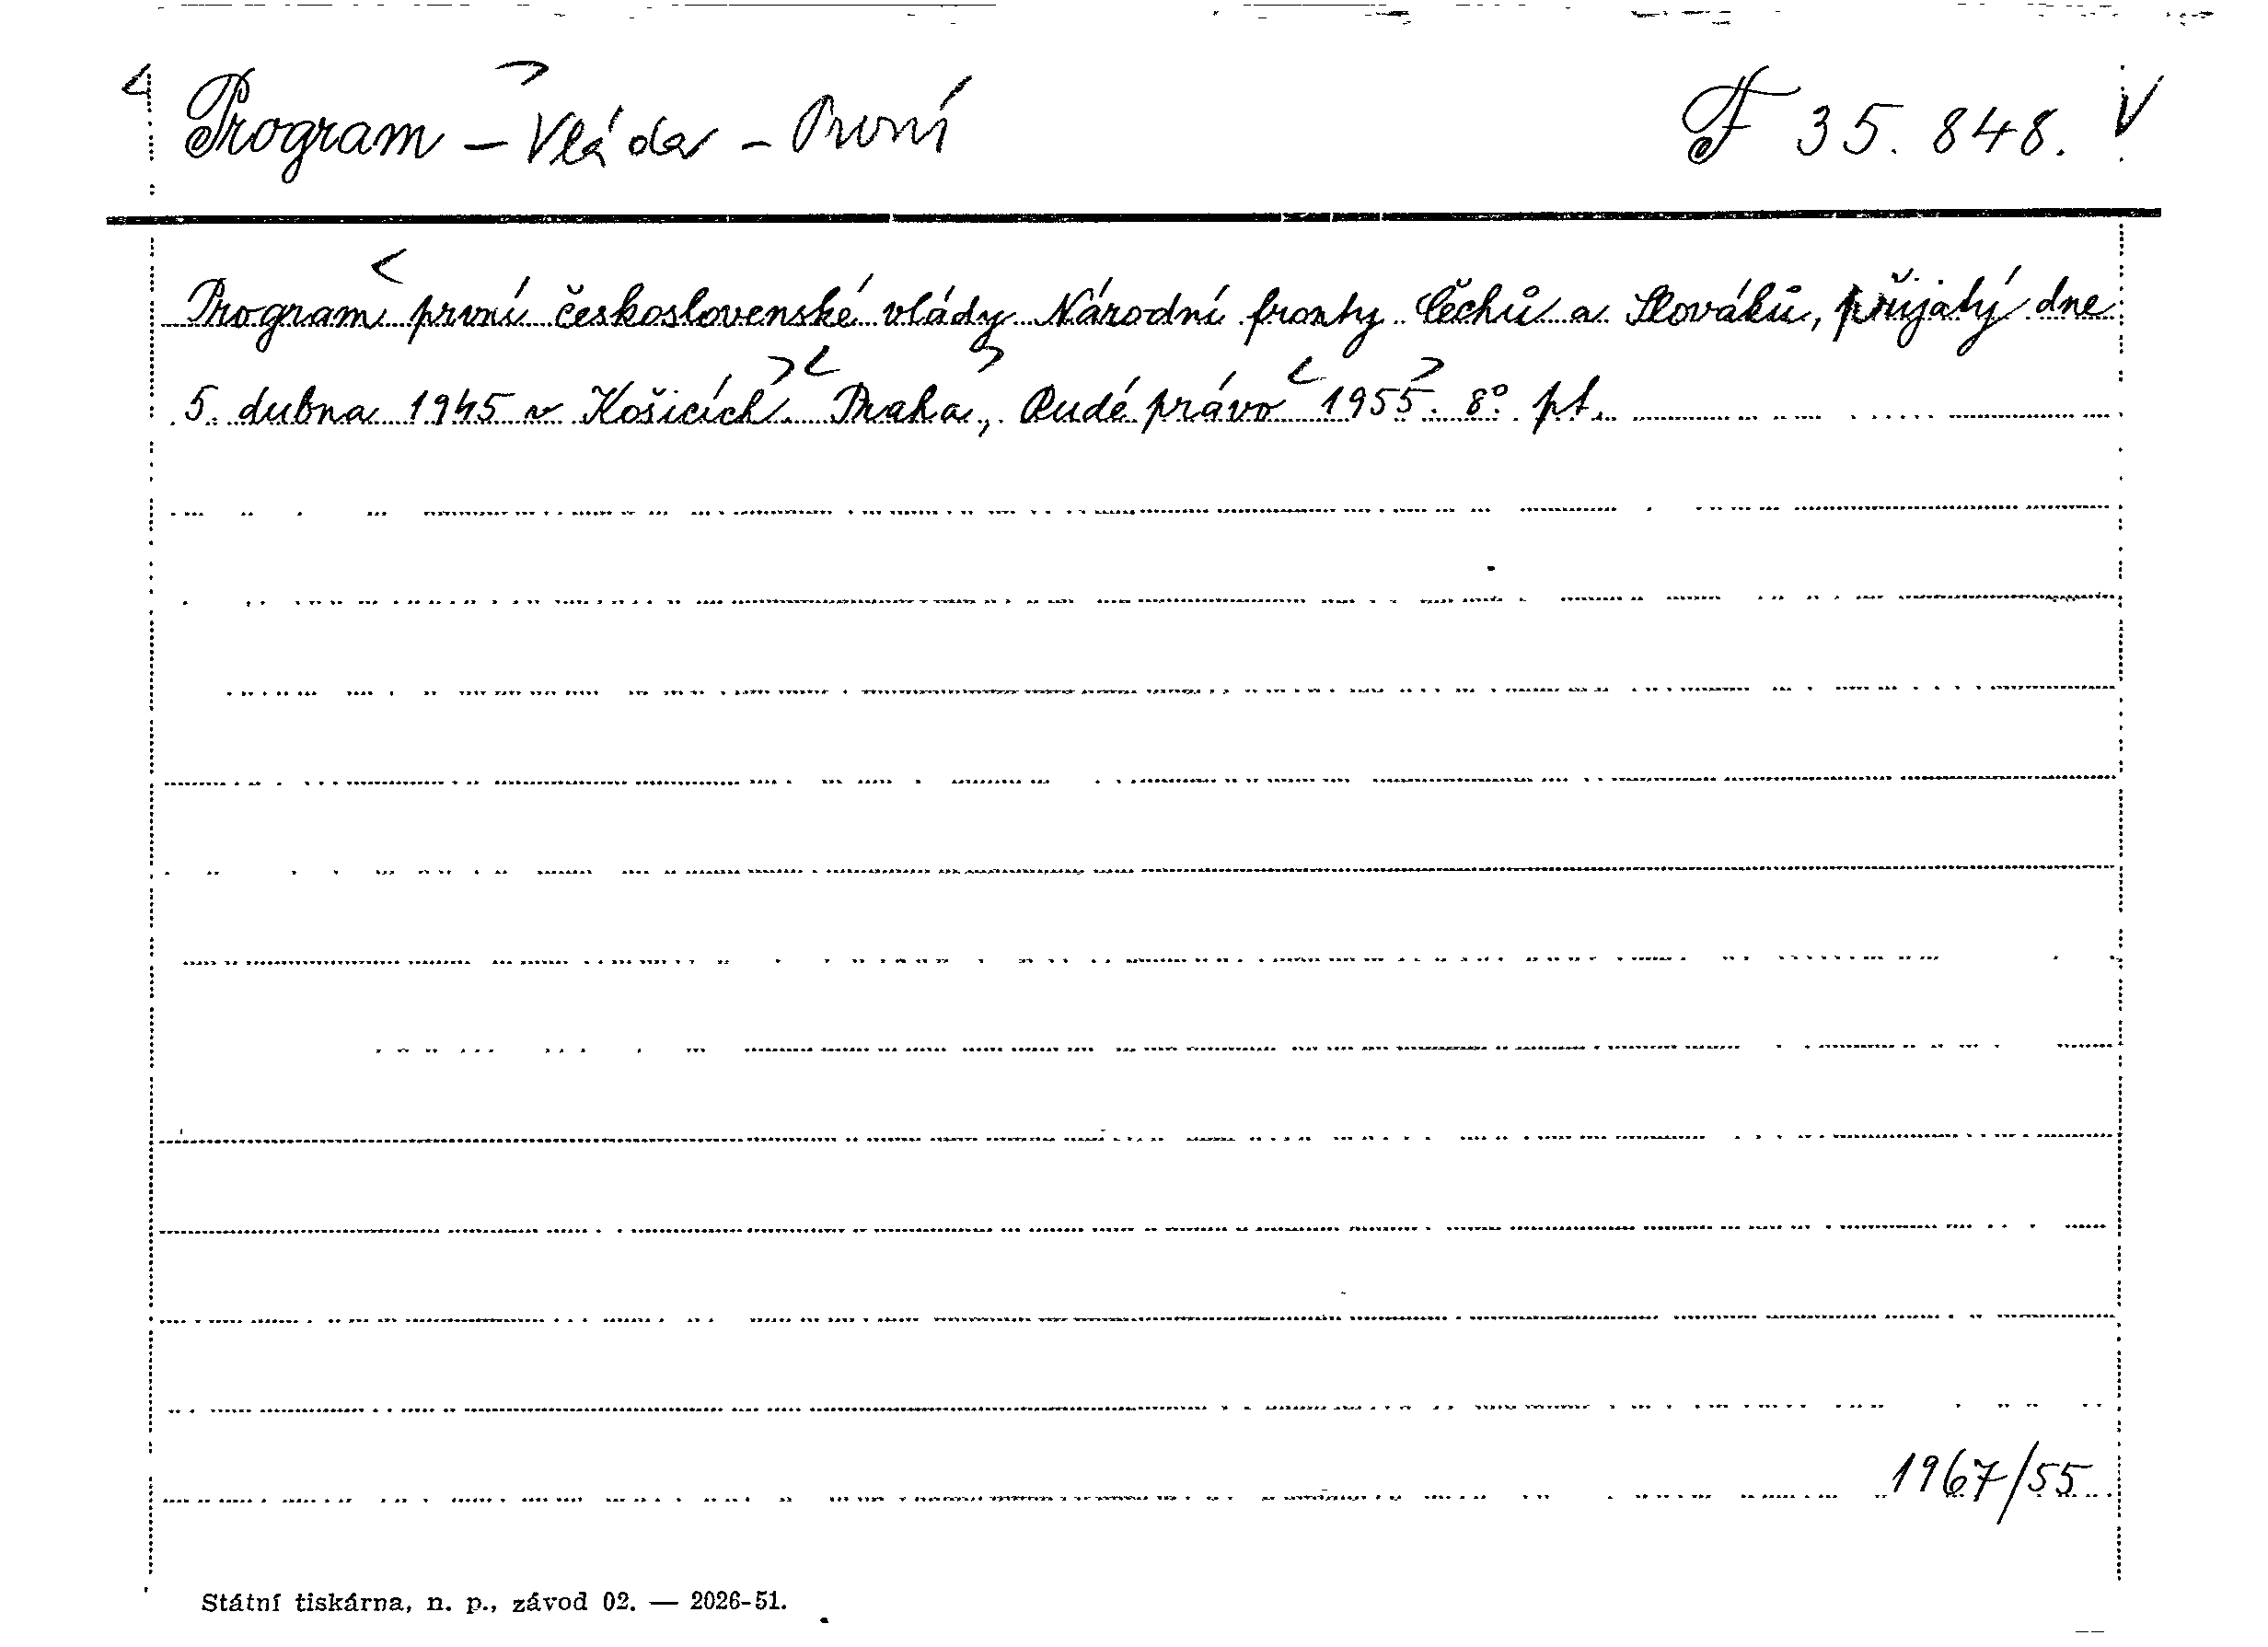 Program – Vláda – První F 35.848. V
Program první československé vlády Národní fronty Čechů a Slováků, přijatý dne
5. dubna 1945 v Košicích. Praha, Rudé právo 1955. 8° pt.
1967/55
Státní tiskárna, n. p., závod 02. — 2026-51.